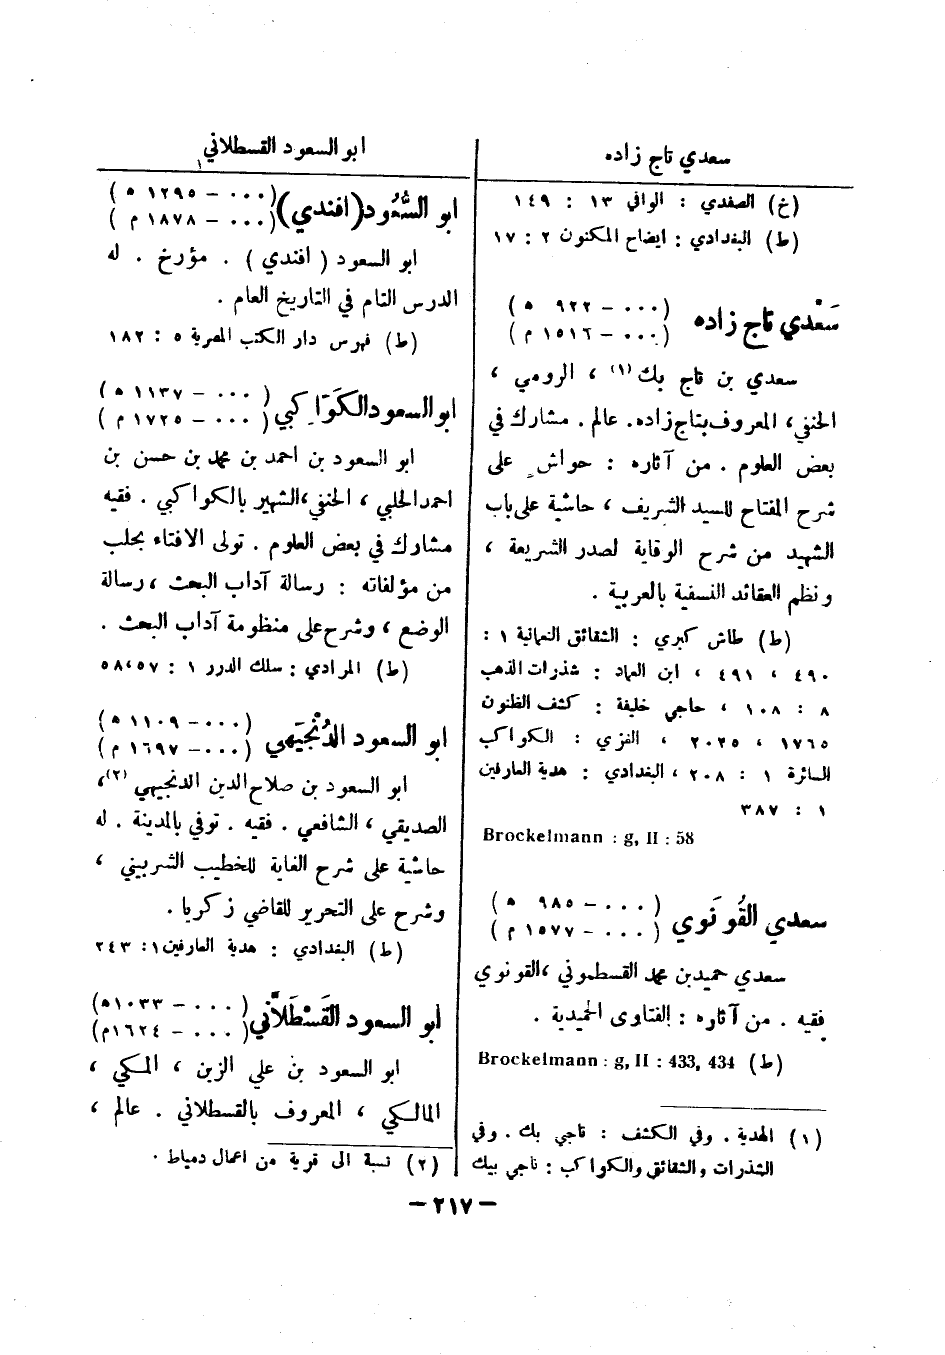 سعدي تاج زاده
(خ) الصفدي : الوافي ١٣ : ١٤٩
(ط) البغدادي : ايضاح المكنون ٢ : ١٧
سَعْدي تاج زاده (٠٠٠ – ٩٢٢ ه)
(٠٠٠ – ١٥١٦ م)
سعدي بن تاج بك (١) ، الرومي ،
الحنفي، المعروف بتاج زاده. عالم . مشارك في
بعض العلوم . من آثاره : حواشٍ على
شرح المفتاح للسيد الشريف ، حاشية على باب
الشهيد من شرح الوقاية لصدر الشريعة ،
ونظم العقائد النسفية بالعربية .
(ط) طاش كبري : الشقائق النعمانية ١ :
٤٩٠ ، ٤٩١ ، ابن العماد : شذرات الذهب
٨ : ١٠٨ ، حاجي خليفة : كشف الظنون
١٧٦٥ ، ٢٠٢٥ ، الغزي : الكواكب
السائرة ١ : ٢٠٨ ، البغدادي : هدية العارفين
١ : ٣٨٧
Brockelmann : g, II : 58
سعدي القُونَوي (٠٠٠ – ٩٨٥ ه)
(٠٠٠ – ١٥٧٧ م)
سعدي حميد بن محمد القسطموني ، القونوي
فقيه . من آثاره : الفتاوى الحميدية .
(ط) Brockelmann : g, II : 433, 434
(١) الهدية . وفي الكشف : تاجي بك . وفي
الشذرات والشقائق والكواكب : ناجي بيك
ابو السعود القسطلاني
ابو السُّعُود (افندي) (٠٠٠ – ١٢٩٥ ه)
(٠٠٠ – ١٨٧٨ م)
ابو السعود ( افندي ) . مؤرخ . له
الدرس التام في التاريخ العام .
(ط) فهرس دار الكتب المصرية ٥ : ١٨٢
ابو السعود الكَوَاكِبي (٠٠٠ – ١١٣٧ ه)
(٠٠٠ – ١٧٢٥ م)
ابو السعود بن احمد بن محمد بن حسن بن
احمد الحلبي ، الحنفي ، الشهير بالكواكبي . فقيه
مشارك في بعض العلوم . تولى الافتاء بحلب
من مؤلفاته : رسالة آداب البحث ، رسالة
الوضع ، وشرح على منظومة آداب البحث .
(ط) المرادي : سلك الدرر ١ : ٥٧، ٥٨
ابو السعود الدُنْجَيهي (٠٠٠ – ١١٠٩ ه)
(٠٠٠ – ١٦٩٧ م)
ابو السعود بن صلاح الدين الدنجيهي (٢)،
الصديقي ، الشافعي . فقيه . توفي بالمدينة . له
حاشية على شرح الغاية للخطيب الشربيني ،
وشرح على التحرير للقاضي زكريا .
(ط) البغدادي : هدية العارفين ١ : ٢٤٣
ابو السعود القَسْطَلّاني (٠٠٠ – ١٠٣٣ ه)
(٠٠٠ – ١٦٢٤ م)
ابو السعود بن علي الزين ، المكي ،
المالكي ، المعروف بالقسطلاني . عالم ،
(٢) نسبة الى قرية من اعمال دمياط .
– ٢١٧ –